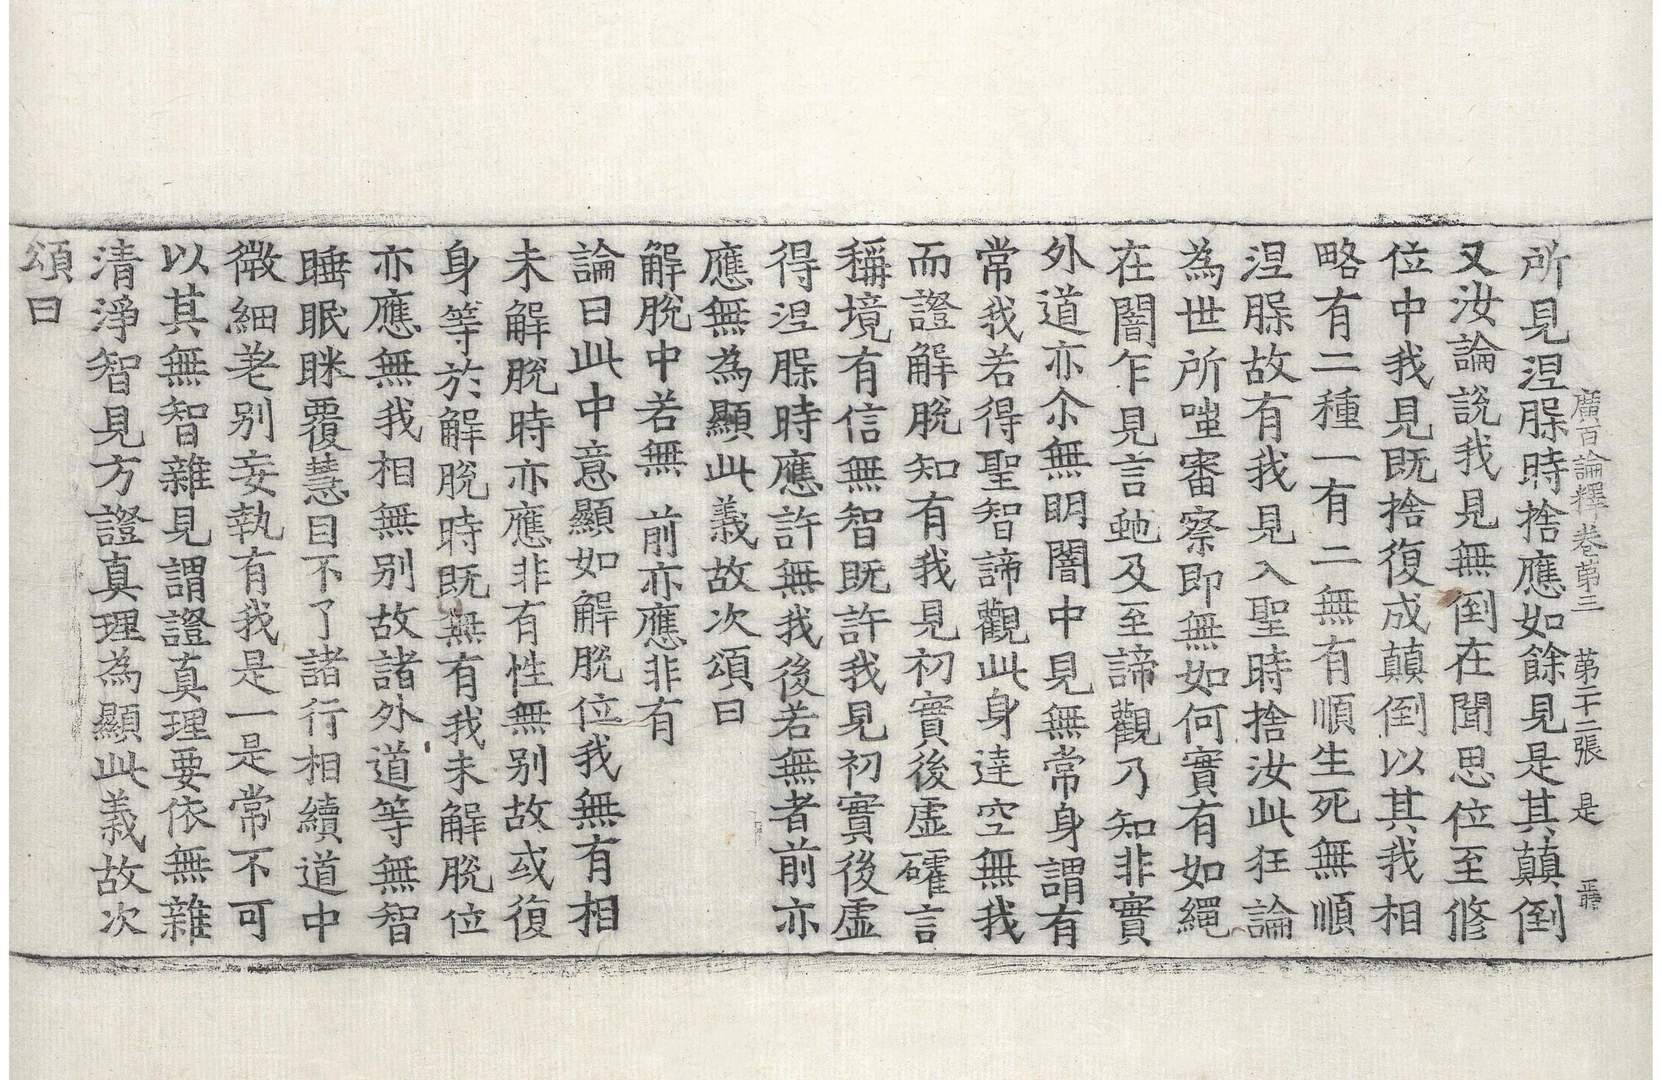 廣百論釋卷苐三 苐二十二張 是
所見涅槃時捨應如餘見是其顛倒
又汝論說我見無倒在聞思位至修
位中我見既捨復成顛倒以其我相
略有二種一有二無有順生死無順
涅槃故有我見入聖時捨汝此狂論
為世所嗤審察即無如何實有如繩
在闇乍見言虵及至諦觀乃知非實
外道亦尒無明闇中見無常身謂有
常我若得聖智諦觀此身達空無我
而證解脫知有我見初實後虛礭言
稱境有信無智既許我見初實後虛
得涅槃時應許無我後若無者前亦
應無為顯此義故次頌曰
解脫中若無 前亦應非有
論曰此中意顯如解脫位我無有相
未解脫時亦應非有性無別故或復
身等於解脫時既無有我未解脫位
亦應無我相無別故諸外道等無智
睡眠眯覆慧目不了諸行相續道中
微細差別妄執有我是一是常不可
以其無智雜見謂證真理要依無雜
清淨智見方證真理為顯此義故次
頌曰